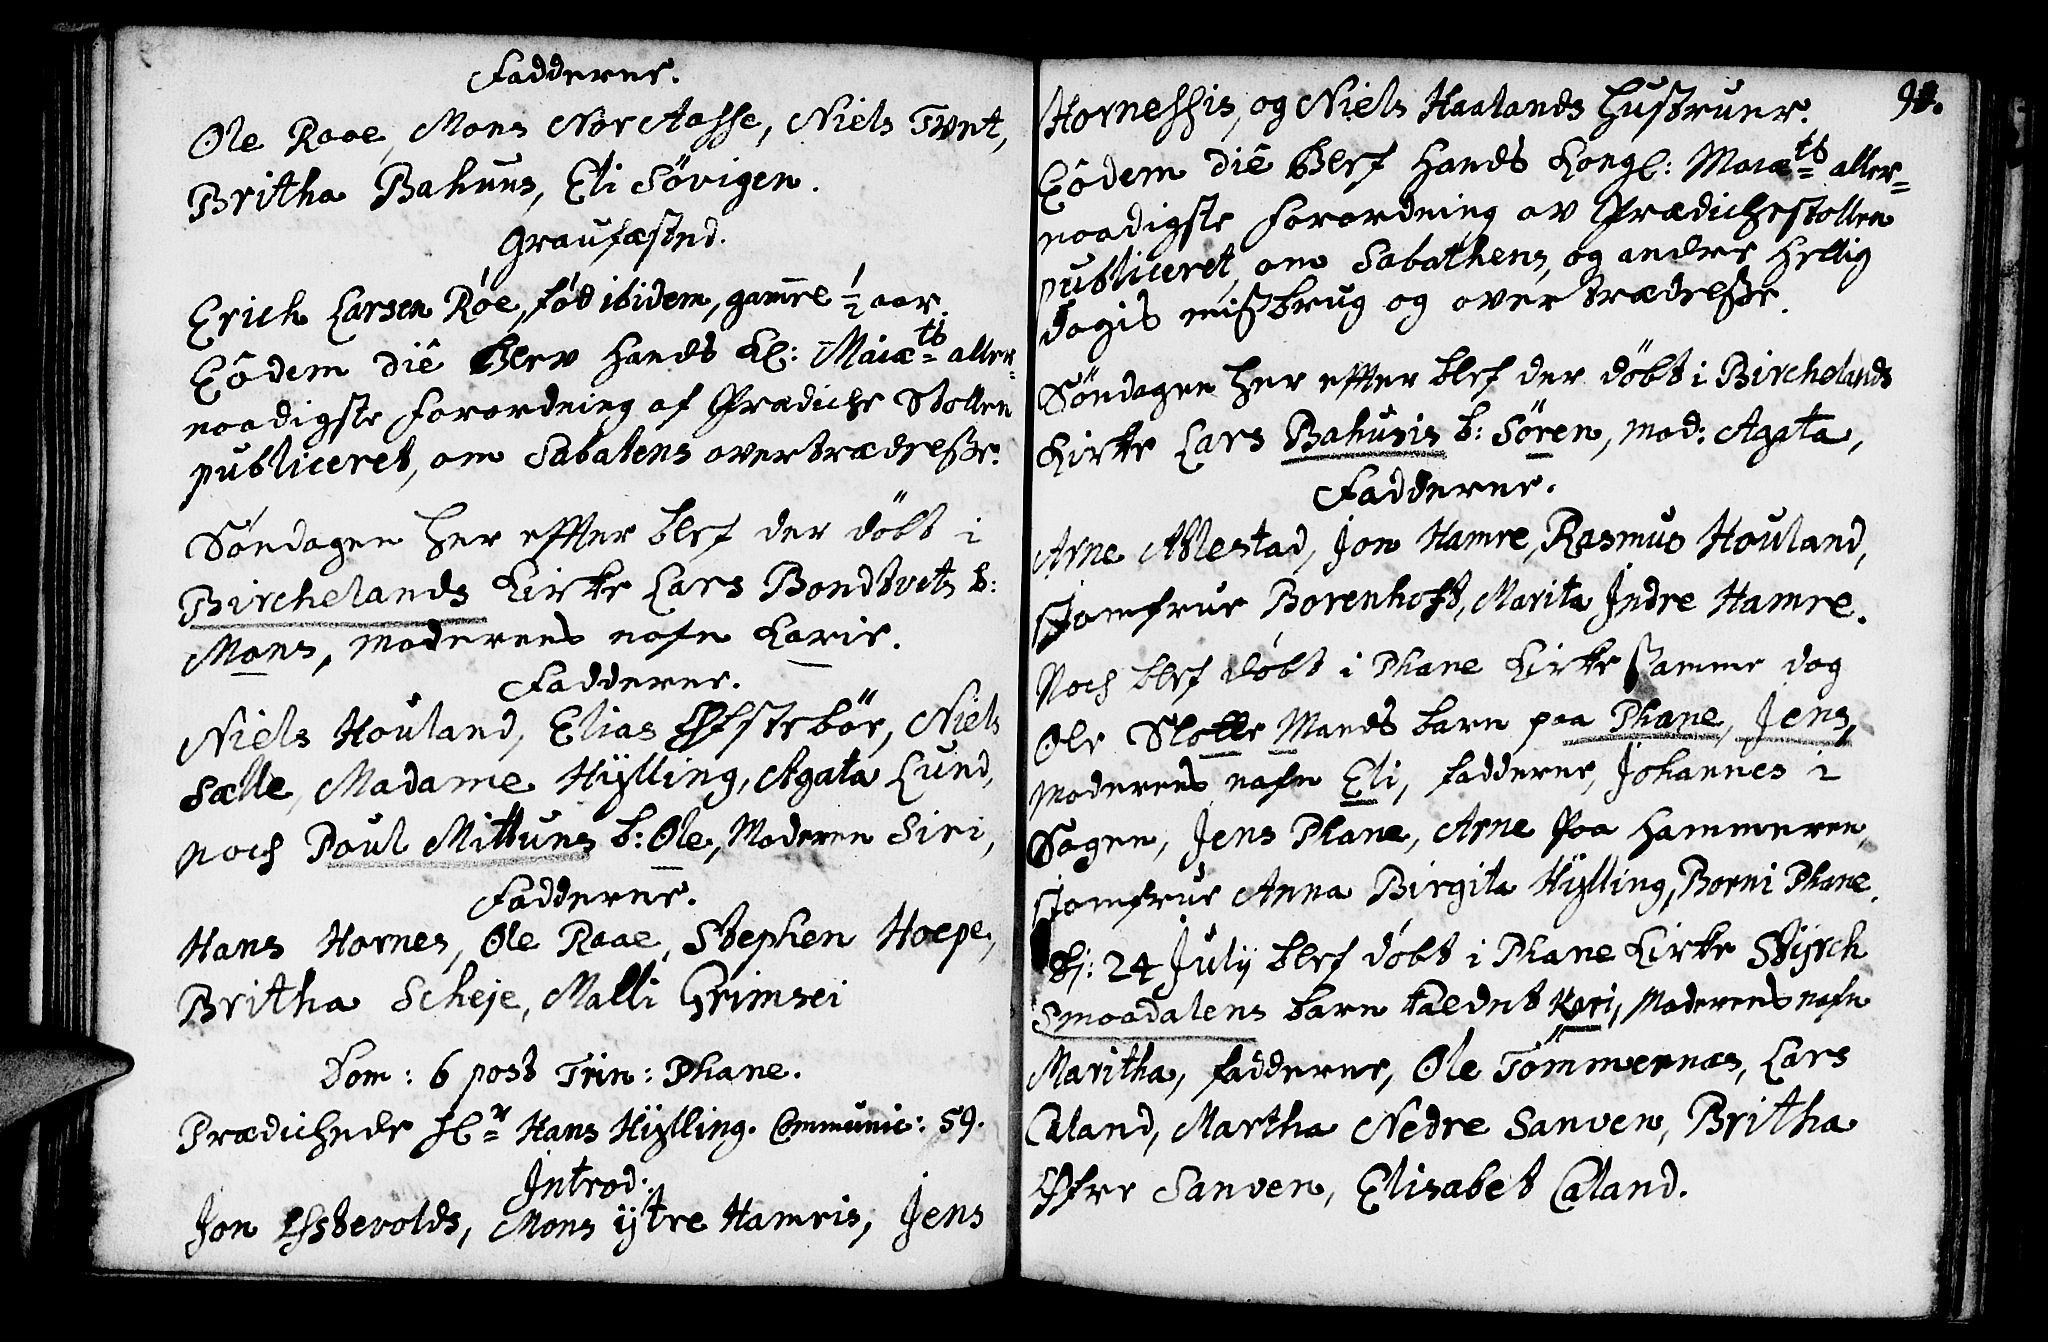 Fadderne.
Ole Raae, Mons Nor Aasse, Niels Tvnt,
Britha Bahuus, Eli Sövigen.
Graufæsted.
Erich Larsen Röe, föd ibidem, gamle ½ aar.
Eôdem diê blev hands Kl: Maiæts aller-
naadigste forordning af Prædiche Stollen
publiceret, om Sabatens overtrædelsse.
Söndagen her effter blef der döbt i
Birchelands Kirke Lars Bondtvets b:
Mons, moderens nafn Karie.
Fadderne.
Niels Houland, Elias Öfstebör, Niels
Sælle, Madame Hÿlling, Agata Lund,
noch Poul Mittuns b: Ole, Moderen Siri,
Fadderne.
Hans Hornes, Ole Raae, Stephen Hoepe,
Britha Scheje, Malli Grimsei
Dom: 6 post Trin: Phane.
Prædichede Hr Hans Hÿlling. Communic: 59.
Introd:
Jon Essbevolds, Mons ÿtre Hamris, Jens
Hornessis, og Niels Haalands hustruer.
Eôdem diê blef hands Kongl: Maiæts aller-
naadigste forordning av Prædichestollen
publiceret, om Sabathens, og andre hellig
dagis misbrug og overtrædelsse.
Söndagen her effter blef der döbt i Birchelands
Kirke Lars Bahusis b: Sören, mod: Agata,
Fadderne.
Arne Ablestad, Jon Hamre, Rasmus Houland,
Jomfrue Borenhoft, Marita Indre Hamre.
Noch blef döbt i Phane Kirke samme dag
Ole Slotte Mands barn paa Phane, Jens,
moderens nafn Eli, fadderne, Johannes i
Sagen, Jens Phane, Arne paa Hammeren,
Jomfrue Anna Birgita Hÿlling, Borni Phane.
D: 24 Julij blef döbt i Phane Kirke Stÿrch
Smaadalens barn kaldet Kari, Moderens nafn
Maritha, fadderne, Ole Tömmernæs, Lars
Caland, Martha Nedre Sanven, Britha
Öfre Sanven, Elisabet Caland.